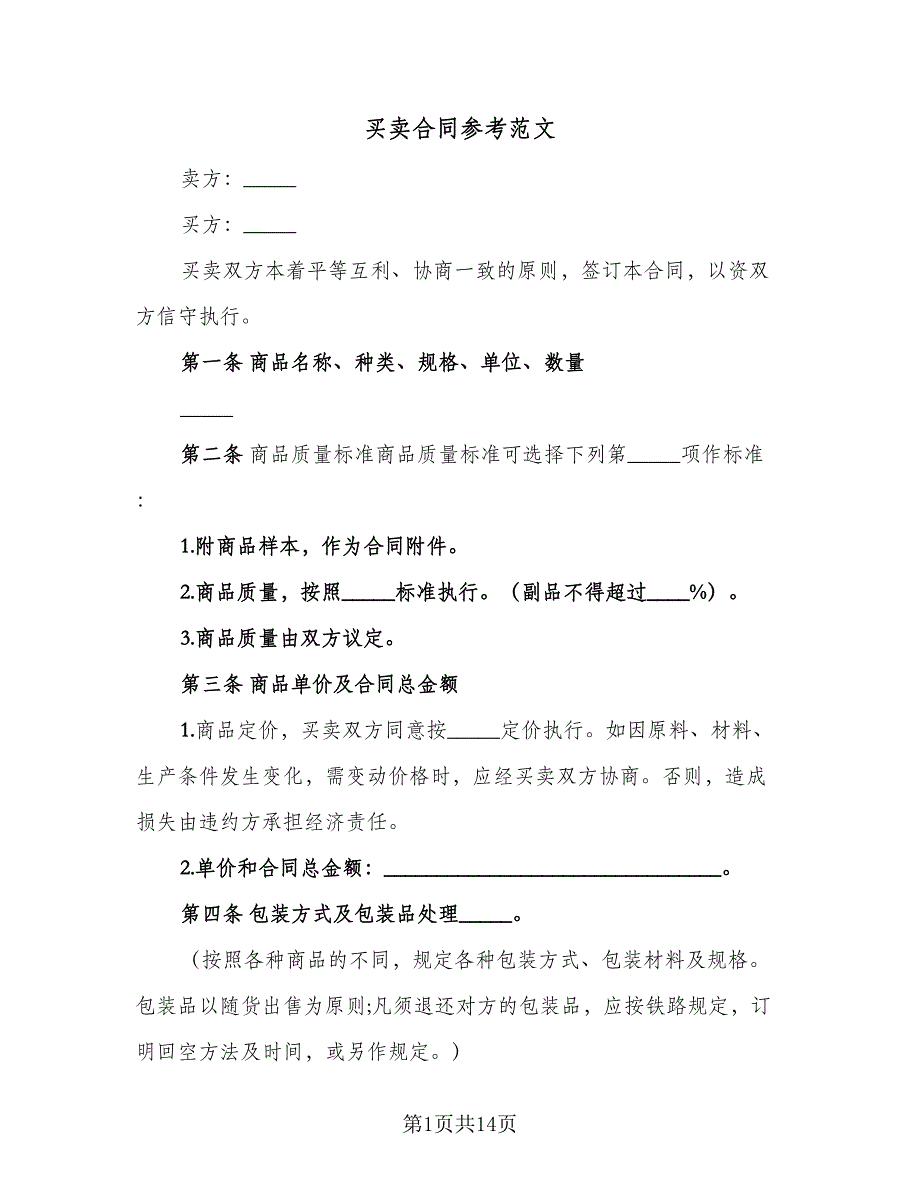 买卖合同参考范文
卖方：_____
买方：_____
买卖双方本着平等互利、协商一致的原则，签订本合同，以资双
方信守执行。
第一条 商品名称、种类、规格、单位、数量
_____
第二条 商品质量标准商品质量标准可选择下列第_____项作标准
：
1.附商品样本，作为合同附件。
2.商品质量，按照_____标准执行。（副品不得超过____%）。
3.商品质量由双方议定。
第三条 商品单价及合同总金额
1.商品定价，买卖双方同意按_____定价执行。如因原料、材料、
生产条件发生变化，需变动价格时，应经买卖双方协商。否则，造成
损失由违约方承担经济责任。
2.单价和合同总金额：________________________________。
第四条 包装方式及包装品处理_____。
（按照各种商品的不同，规定各种包装方式、包装材料及规格。
包装品以随货出售为原则;凡须退还对方的包装品，应按铁路规定，订
明回空方法及时间，或另作规定。）
第1页共14页